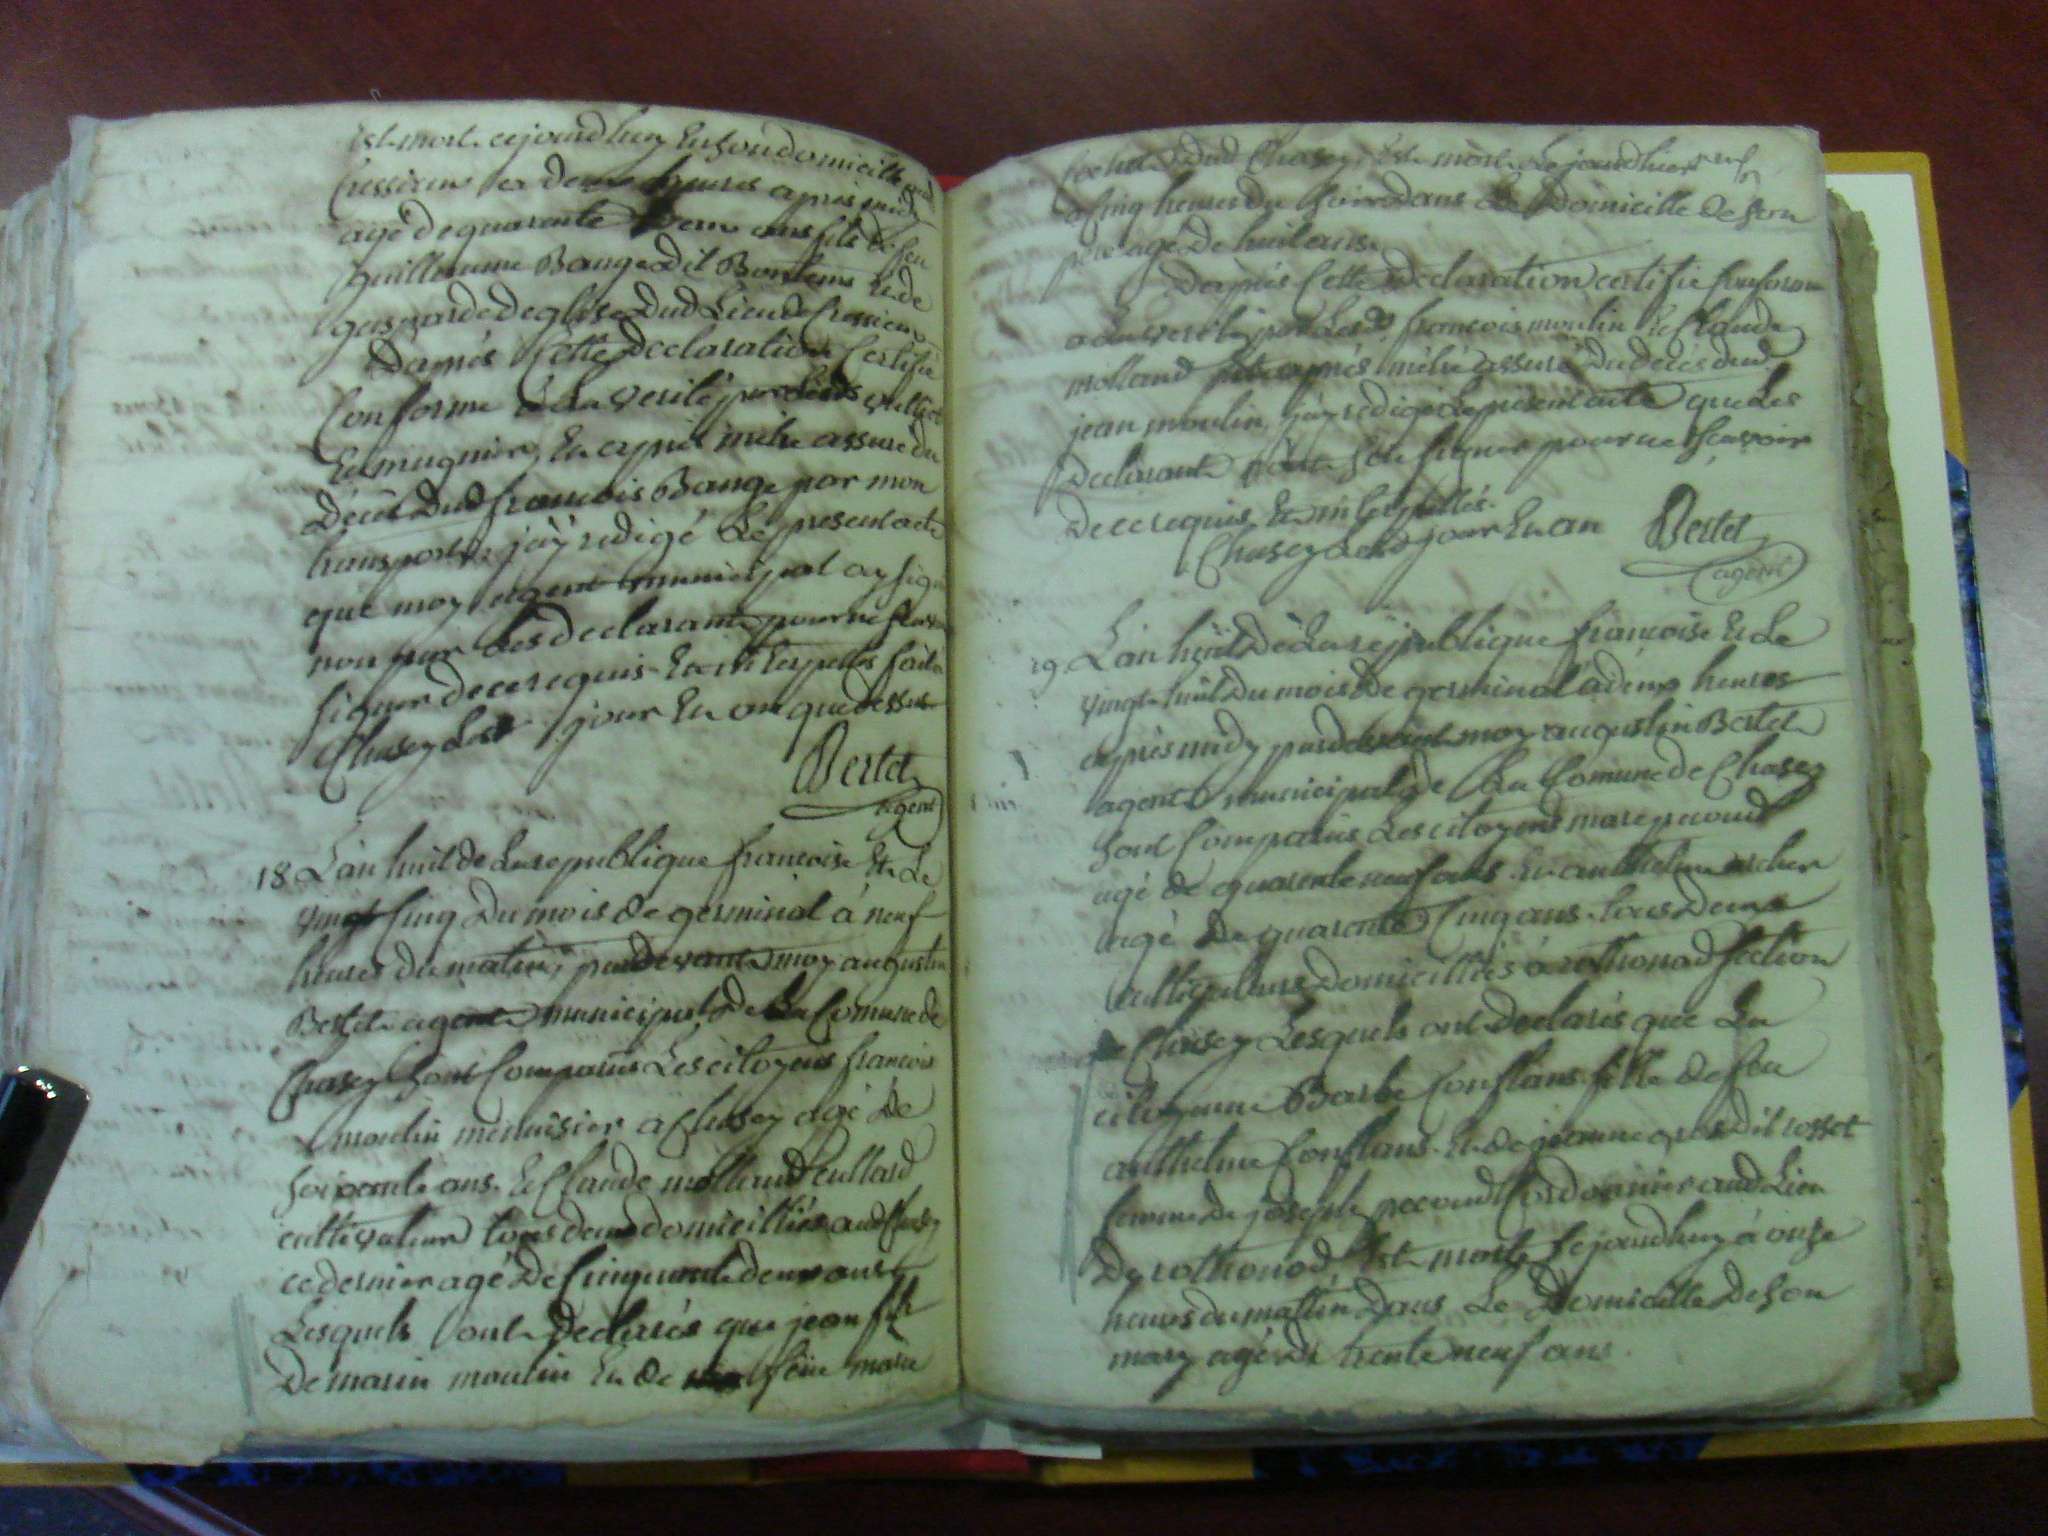 est mort cejourdhuy en son domicille aud
Cressieux a deux heures apres midy
agé de quarente deux ans fils de feu
guillaume Bauge dit Bontems et de
gasparde Deglise dud Lieu de Cressieux
Daprés Cette declaration Certifié
Conforme a la verité par lesds
et mugnier, et apres mêtre assuré du
Décés dud françois Bauge par mon
transport, jáÿ redigé Le present acte
que moy agent municipal ay signé
non par Les declarants pour ne scavoir
signer de ce requis et interpellés fait a
Chasey Lesd jour et an que dessus
Bertet
agent
18 L'an huit de La republique francoise et Le
vingt Cinq Du mois de germinal á neuf
heures du matin, pardevant moy augustin
Bertet agent municipal de La Comune de
Chasey sont Comparus Les citoyens francois
moulin menuisier a Chasey agé De
soixante ans. et Claude molland cullard
cultivateur tous deux domicilliés aud Chasey
ce dernier agé De Cinquante deux ans
Lesquels ont Declarés que jean fils
De marin moulin et de feüe marie
rochet dud Chasey, est mort Le jourdhier
a Cinq heures du soir dans Le Domicille de son
pere agé de huit ans.
Daprés Cette Declaration certifié Conforme
a la verité par Lesds. francois moulin et Claude
molland et aprés mêtre assuré Du décés dud.
jean moulin, jáy redigé Le présent acte que Les
Declarants n'ont sçu signer pour ne sçavoir
De ce requis et interpellés.
Chasey Lesd jour et an
Bertet
agent
19. L'an huit De La republique francoise et Le
vingt huit Du mois De germinal á deux heures
aprés midy pardevant moy augustin Bertet
agent municipal de La Comune de Chasey
sont Comparus Les citoyens marc pecoud
agé de quarente neuf ans. et anthelme archer
agé De quarente Cinq ans. tous Deux
cultivateurs Domicilliés á rothonod section
de Chasey Lesquels ont declarés que La
citoyenne Barbe Conflans fille de feu
anthelme Conflans. et de jeanne gros dit rosset
femme de joseph pecoud Cordonnier aud Lieu
De rothonod est morte Cejourdhuy á onze
heures du mattin Dans Le Domicille De son
mary agée de trente neuf ans.